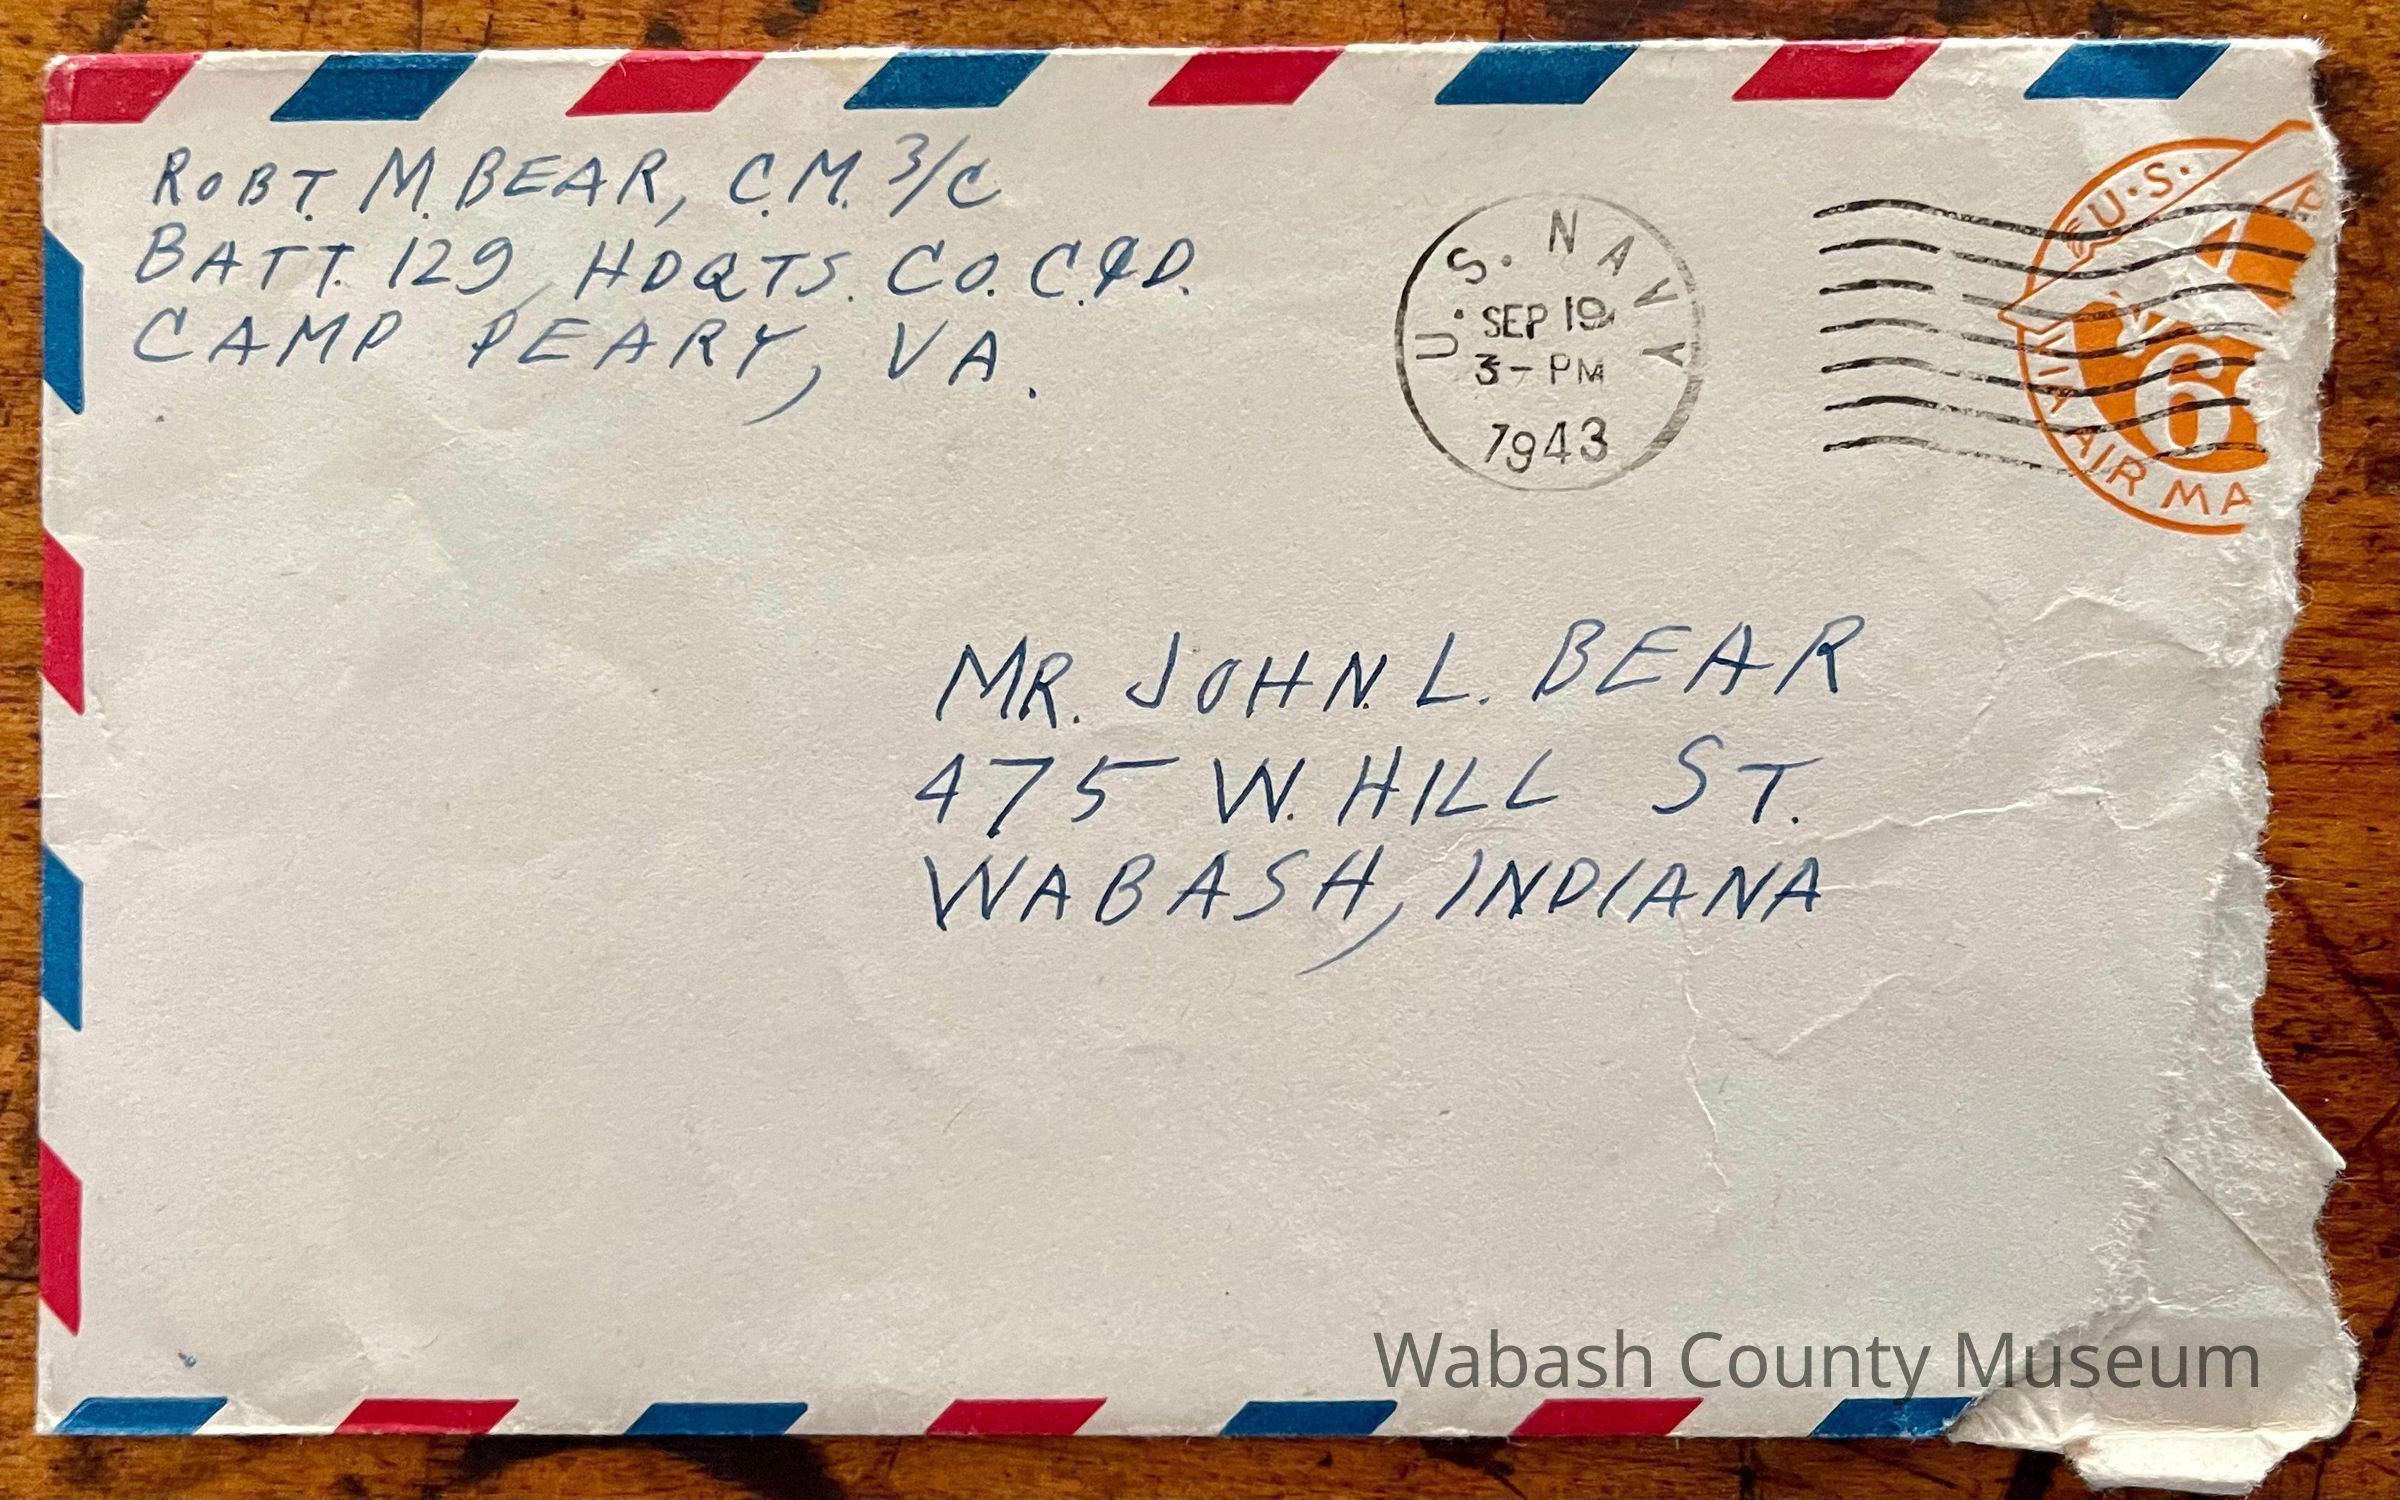 ROBT. M. BEAR, C.M. 3/C
BATT. 129 HDQTS. CO. C.&D.
CAMP PEARY, VA.
U.S. NAVY
SEP 19
3-PM
1943
U.S.
6
VIA AIR MA
MR. JOHN L. BEAR
475 W. HILL ST.
WABASH, INDIANA
Wabash County Museum